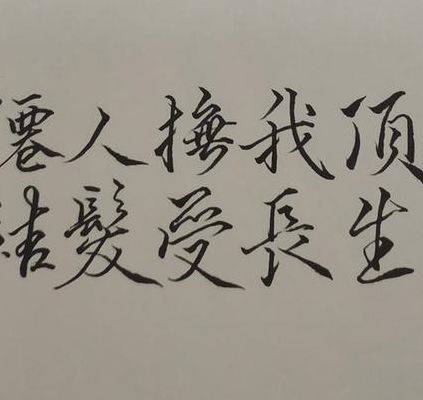 僊人撫我頂
結髮受長生